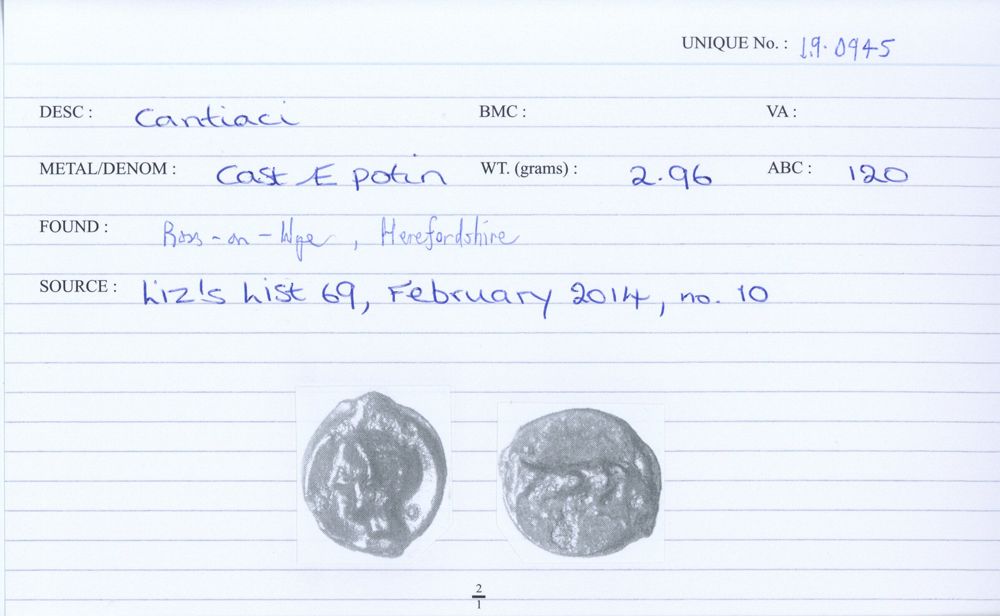 UNIQUE No. : 19.0945
DESC : Cantiaci BMC : VA :
METAL/DENOM : Cast Æ potin WT. (grams) : 2.96 ABC : 120
FOUND : Ross-on-Wye, Herefordshire
SOURCE : Liz's List 69, February 2014, no. 10
2
1